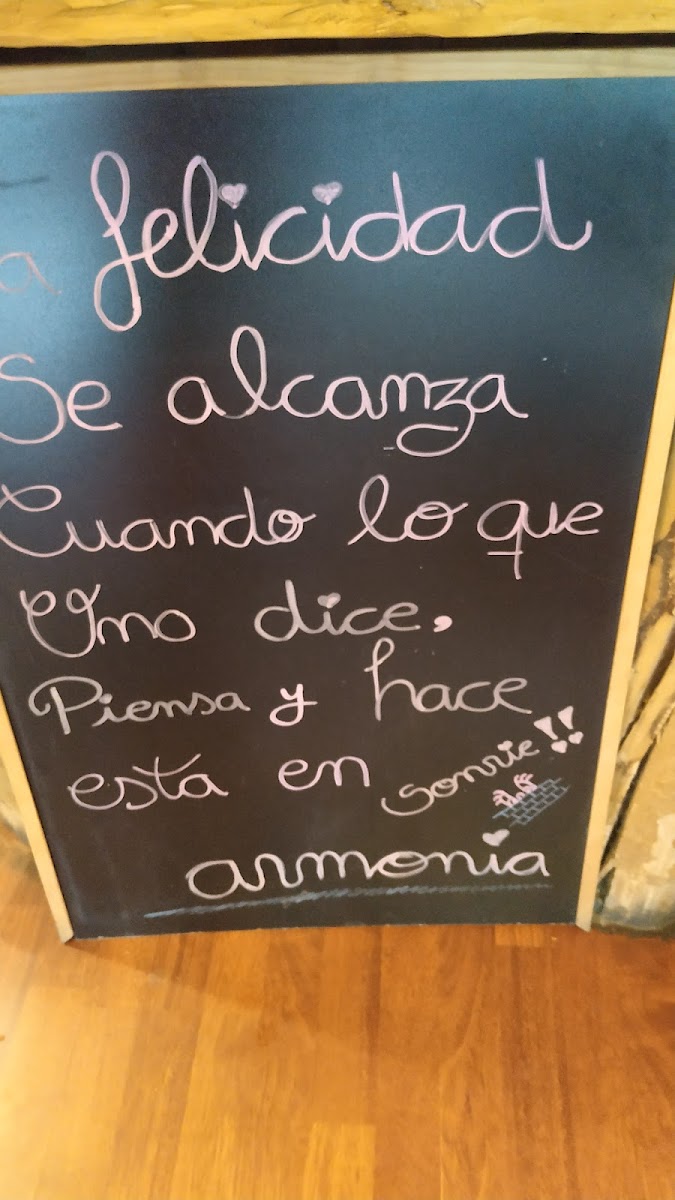 a felicidad
Se alcanza
Cuando lo que
Uno dice,
Piensa y hace
esta en sonrie!!
armonia